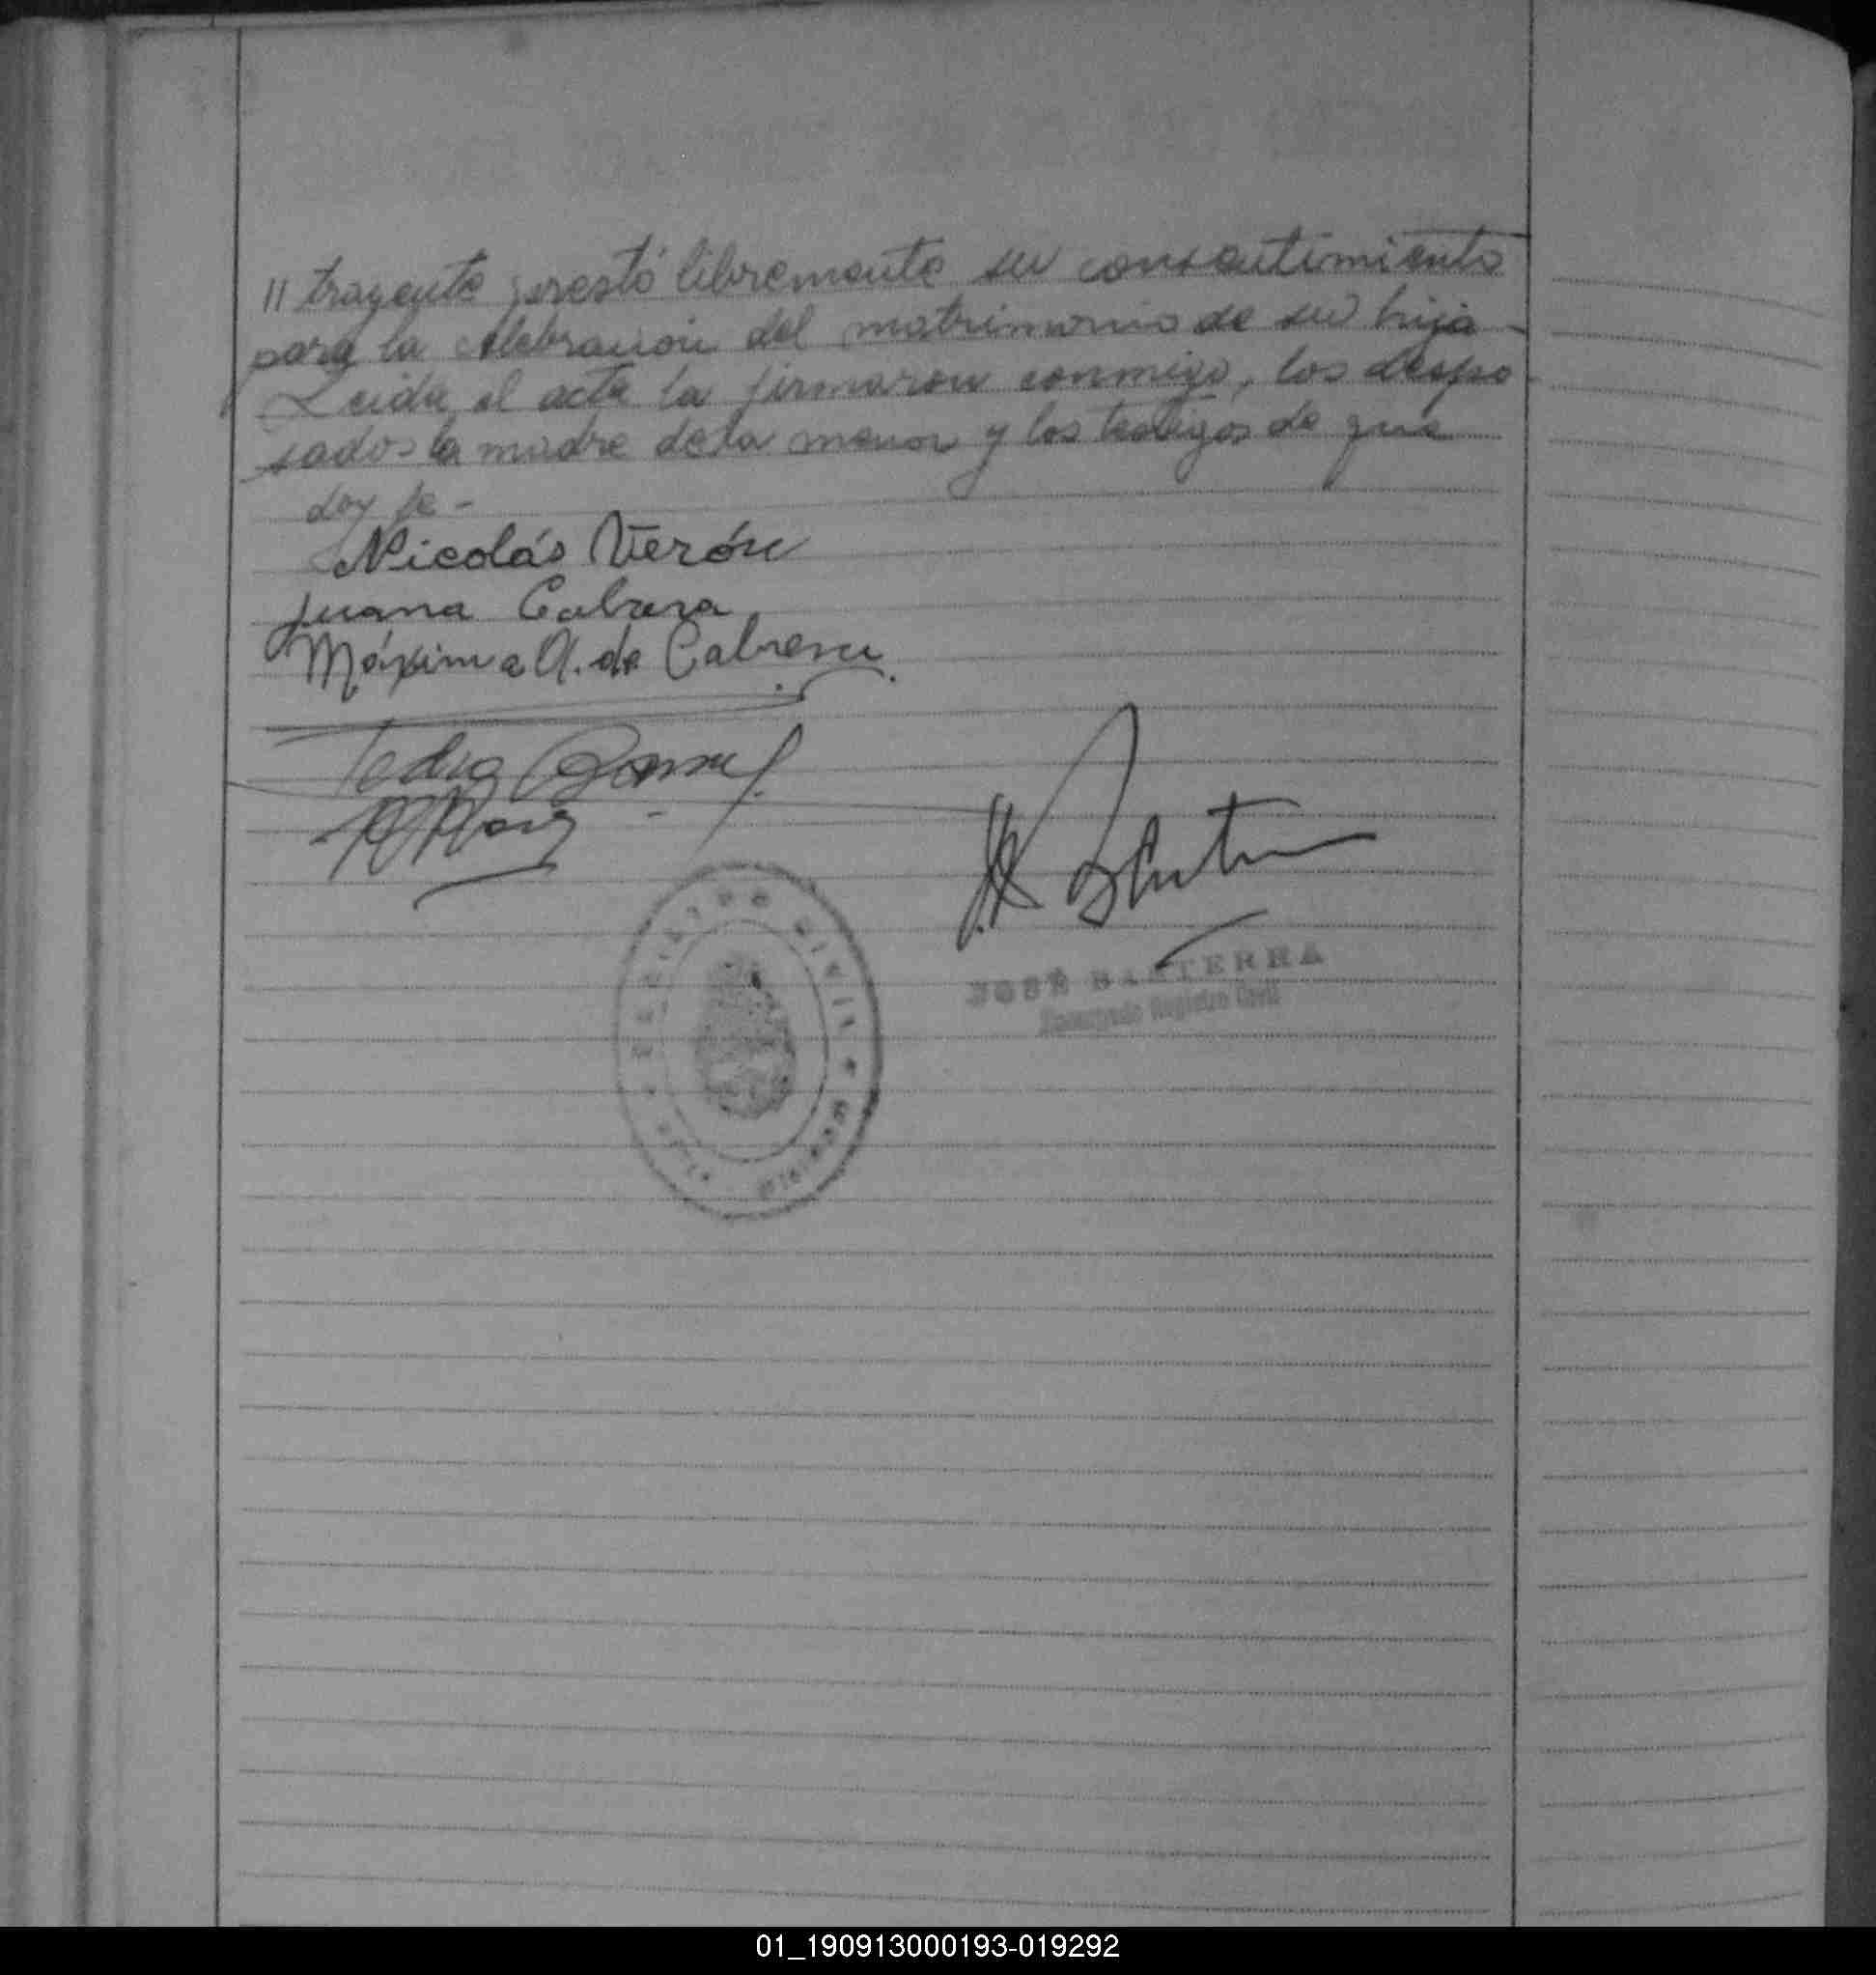 // trayente prestó libremente su consentimiento
para la celebración del matrimonio de su hija -
Leida el acta la firmaron conmigo, los despo
sados la madre de la menor y los testigos de que
doy fe -
Nicolás Verón
Juana Cabrera
Máxima A. de Cabrera.
Pedro
JOSÉ BASTERRA
Encargado Registro Civil
REGISTRO CIVIL
01_190913000193-019292